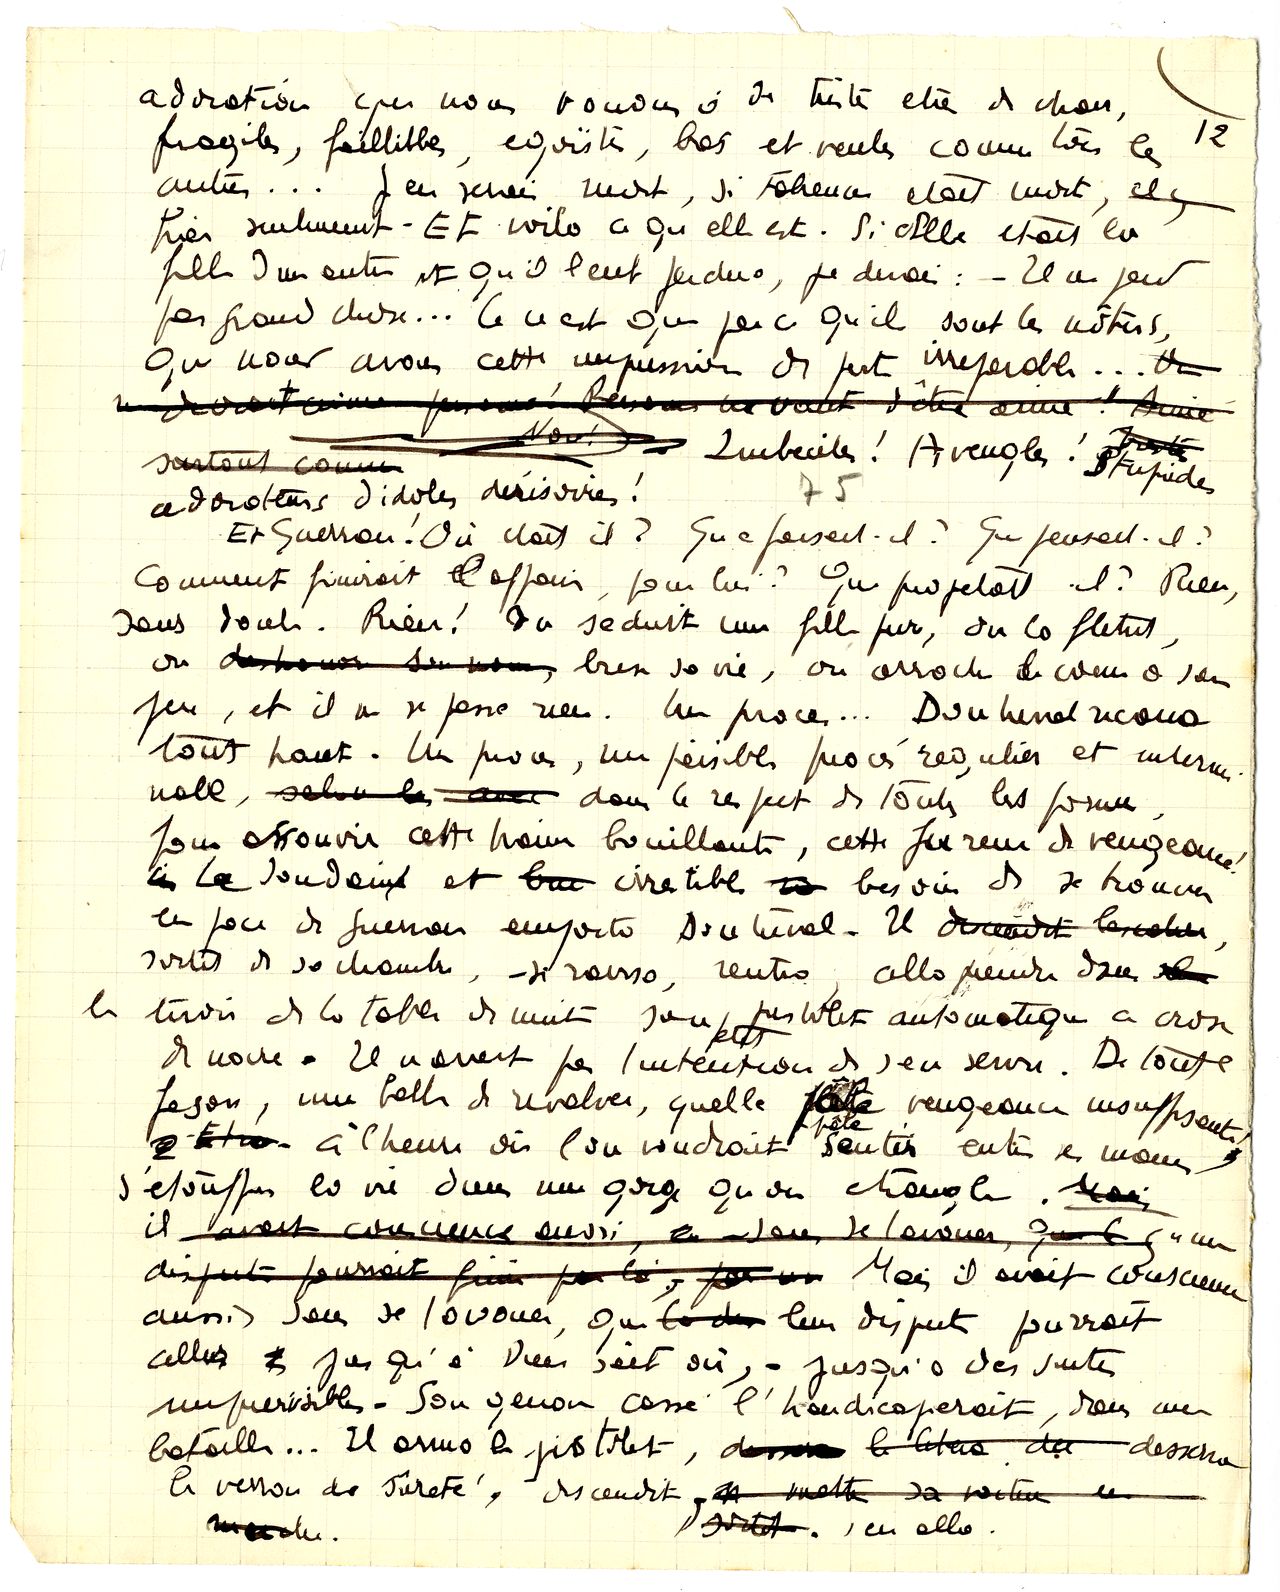 adoration que nous vouons à de tristes êtres de chair,
12
fragiles, faillibles, egoïstes, bas et veules comme tous les
autres... J'en serais mort, si Fabienne etait morte,
hier seulement - Et voilà ce qu'elle est. Si elle etait la
fille d'un autre et qu'il l'eut perdue, je dirais : - Il ne perd
pas grand chose... Ce n'est que parce qu'ils sont les nôtres,
que nous avons cette impression de perte irreparable... On
ne devrait aimer personne! Personne ne vaut d'être aimé! Aimé
surtout comme Non! Imbeciles! Aveugles! Stupides
adorateurs d'idoles dérisoires!
75
Et Guerran! Où etait il? Que faisait-il? Que pensait-il?
Comment finirait l'affaire, pour lui? Que projetait-il? Rien,
sans doute. Rien! On seduit une fille pure, on la fletrit,
on deshonore son nom, brise sa vie, on arrache le coeur à son
pere, et il ne se passe rien. Un proces... Doutreval ricana
tout haut. Un proces, un paisible procés régulier et intermi-
nable, selon les dans le respect de toutes les formes,
pour assouvir cette haine bouillante, cette fureur de vengeance!
Le soudain et irrestible besoin de se trouver
en face de Guerran emporta Doutreval - Il descendit l'escalier,
sortit de sa chambre, se ravisa, rentra, alla prendre dans
le tiroir de la table de nuit son petit pistolet automatique a crosse
de nacre - Il n'avait pas l'intention de s'en servir. De toute
façon, une balle de revolver, quelle pâle vengeance insuffisante!
à l'heure où l'on voudrait sentir entre ses mains,
s'étouffer la vie dans une gorge qu'on étrangle. Mais
il avait conscience aussi, sans se l'avouer, que le qu'une
dispute pourrait finir par là, par un Mais il avait conscience
aussi, sans se l'avouer, que leur dispute pourrait
aller jusqu'à Dieu sait où, - jusqu'à des suites
imprevisibles - Son genou cassé l'handicaperait, dans une
bataille... Il arma le pistolet, desserra
le verrou de sûreté, descendit, mettre sa voiture en
marche. sortit. s'en alla.